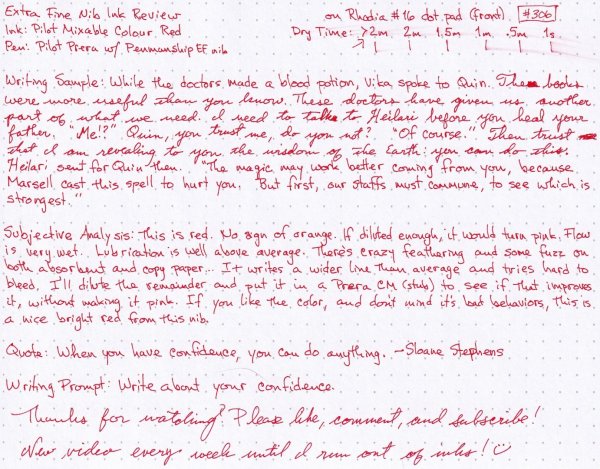 Extra Fine Nib Ink Review
on Rhodia #16 dot pad (front) #306
Ink: Pilot Mixable Colour Red
Dry Time: >2m 2m 1.5m 1m .5m 1s
Pen: Pilot Prera w/ Penmanship EF nib
Writing Sample: While the doctors made a blood potion, Vika spoke to Quin. "The books
were more useful than you know. These doctors have given us another
part of what we need. I need to talk to Heilari before you heal your
father. "Me!?" Quin, you trust me, do you not? "Of course." Then trust
that I am revealing to you the wisdom of the Earth: you can do this.
Heilari sent for Quin then. "The magic may work better coming from you, because
Marsell cast this spell to hurt you. But first, our staffs must commune, to see which is
strongest."
Subjective Analysis: This is red. No sign of orange. If diluted enough, it would turn pink. Flow
is very wet. Lubrication is well above average. There's crazy feathering and some fuzz on
both absorbent and copy paper... It writes a wider line than average and tries hard to
bleed. I'll dilute the remainder and put it in a Prera CM (stub) to see if that improves
it, without making it pink. If you like the color, and don't mind it's bad behaviors, this is
a nice bright red from this nib.
Quote: When you have confidence, you can do anything. -Sloane Stephens
Writing Prompt: Write about your confidence.
Thanks for watching! Please like, comment, and subscribe!
New video every week until I run out of inks! :)